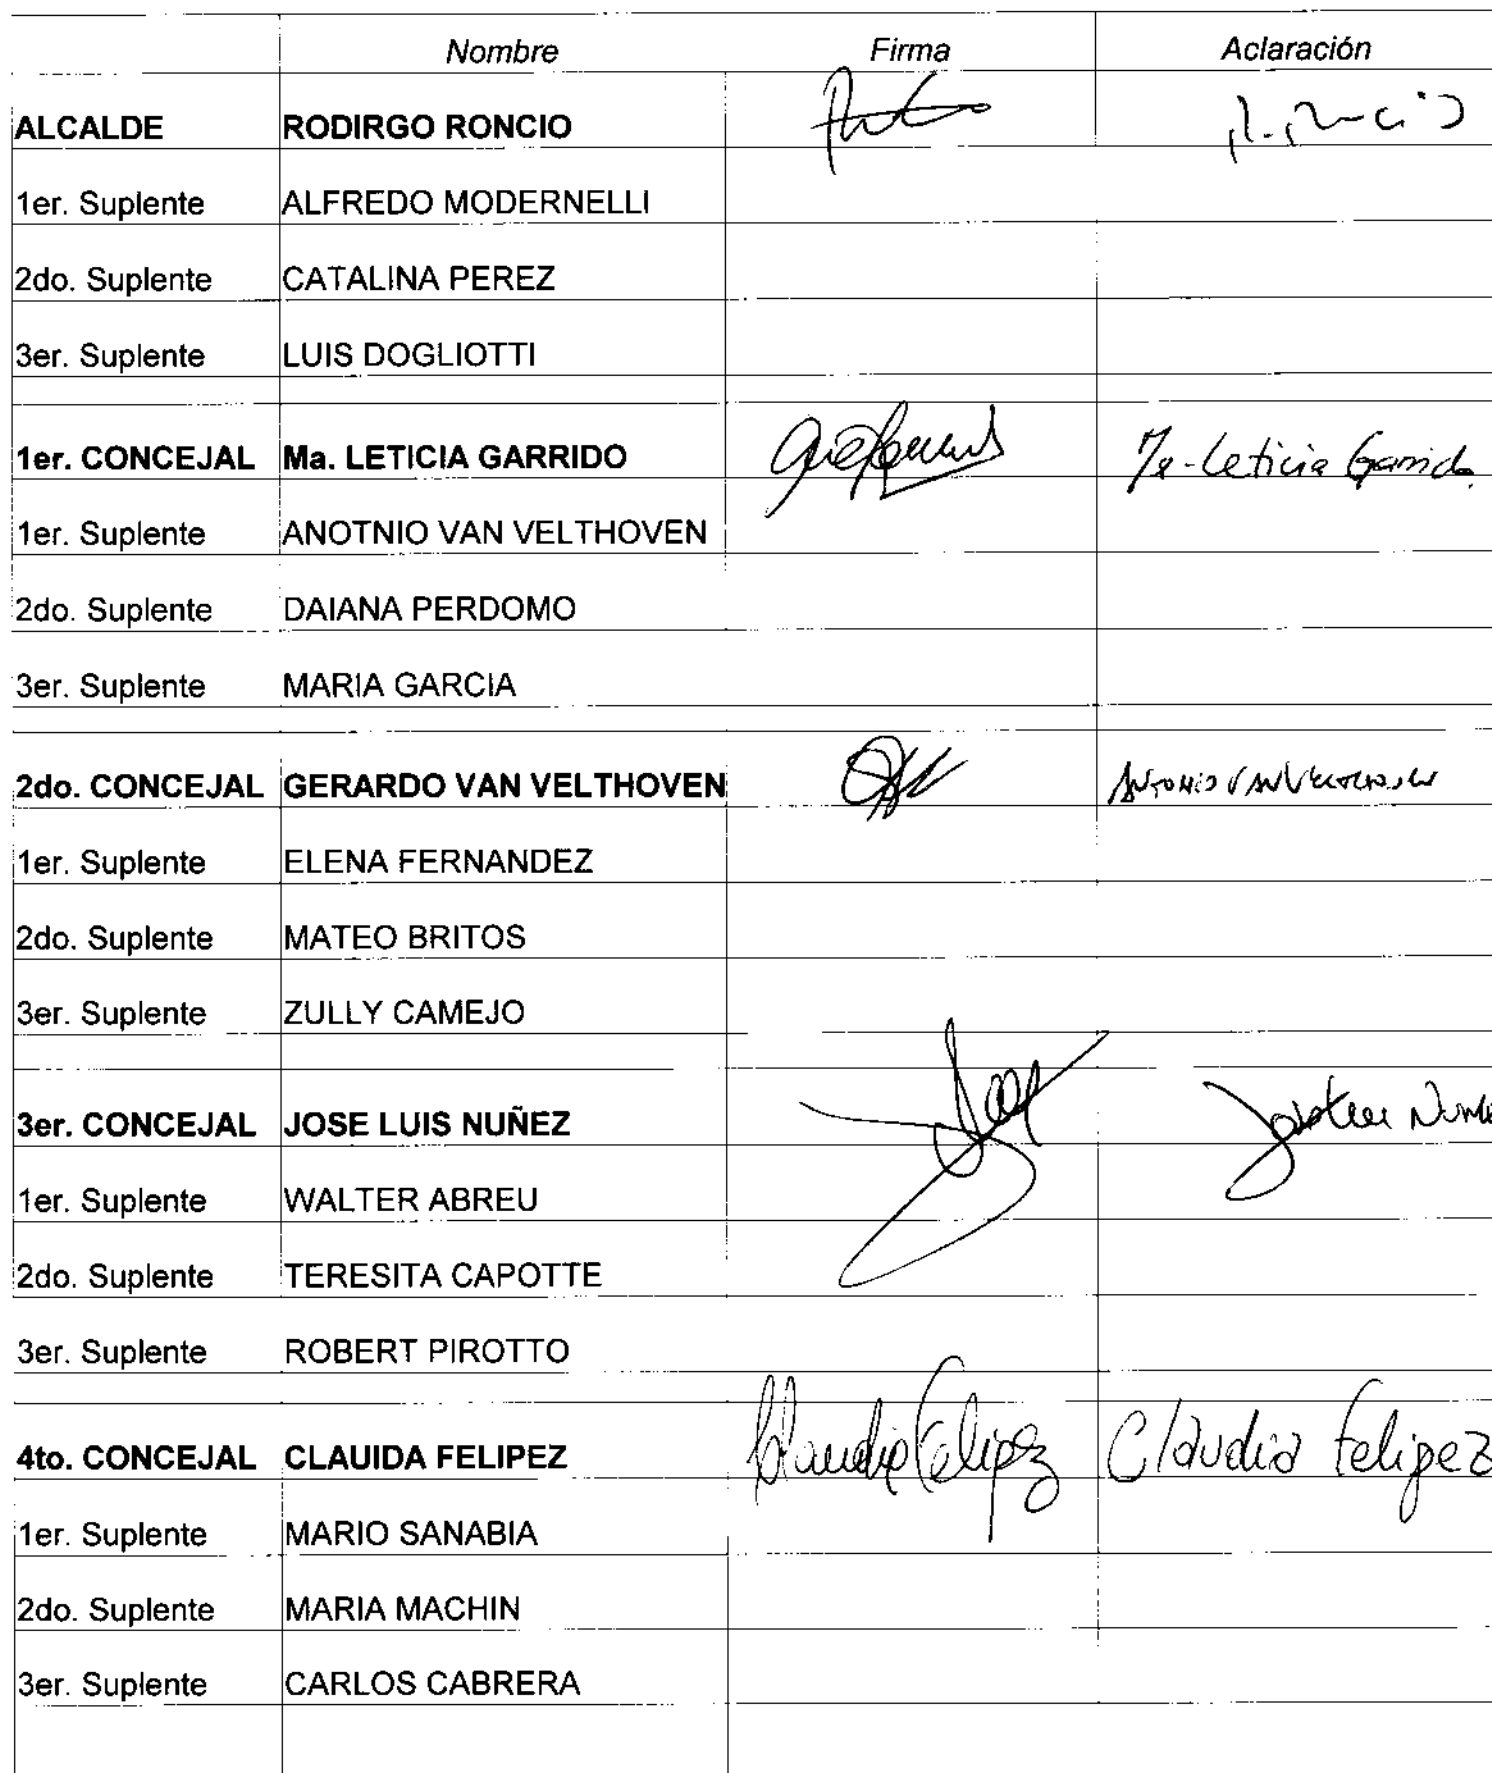 Nombre Firma Aclaración
ALCALDE RODIRGO RONCIO
1er. Suplente ALFREDO MODERNELLI
2do. Suplente CATALINA PEREZ
3er. Suplente LUIS DOGLIOTTI
1er. CONCEJAL Ma. LETICIA GARRIDO Ma-Leticia Garrido
1er. Suplente ANOTNIO VAN VELTHOVEN
2do. Suplente DAIANA PERDOMO
3er. Suplente MARIA GARCIA
2do. CONCEJAL GERARDO VAN VELTHOVEN ANTONIO VAN VELTHOVEN
1er. Suplente ELENA FERNANDEZ
2do. Suplente MATEO BRITOS
3er. Suplente ZULLY CAMEJO
3er. CONCEJAL JOSE LUIS NUÑEZ
1er. Suplente WALTER ABREU
2do. Suplente TERESITA CAPOTTE
3er. Suplente ROBERT PIROTTO
4to. CONCEJAL CLAUIDA FELIPEZ Claudia Felipez Claudia Felipez
1er. Suplente MARIO SANABIA
2do. Suplente MARIA MACHIN
3er. Suplente CARLOS CABRERA